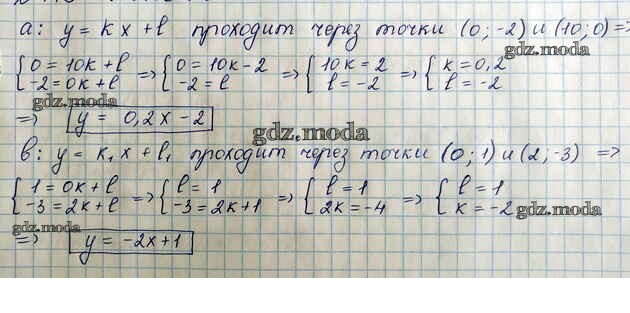 a: y = kx + l проходит через точки (0; -2) и (10; 0) =>
gdz.moda
{0 = 10k + l => {0 = 10k - 2 => {10k = 2 => {k = 0,2
{-2 = 0k + l {-2 = l {l = -2 {l = -2
gdz.moda
=> y = 0,2x - 2
gdz.moda
в: y = k₁x + l₁ проходит через точки (0; 1) и (2; -3) =>
{1 = 0k + l => {l = 1 => {l = 1 => {l = 1
{-3 = 2k + l {-3 = 2k + 1 {2k = -4 {k = -2
gdz.moda
gdz.moda
=> y = -2x + 1